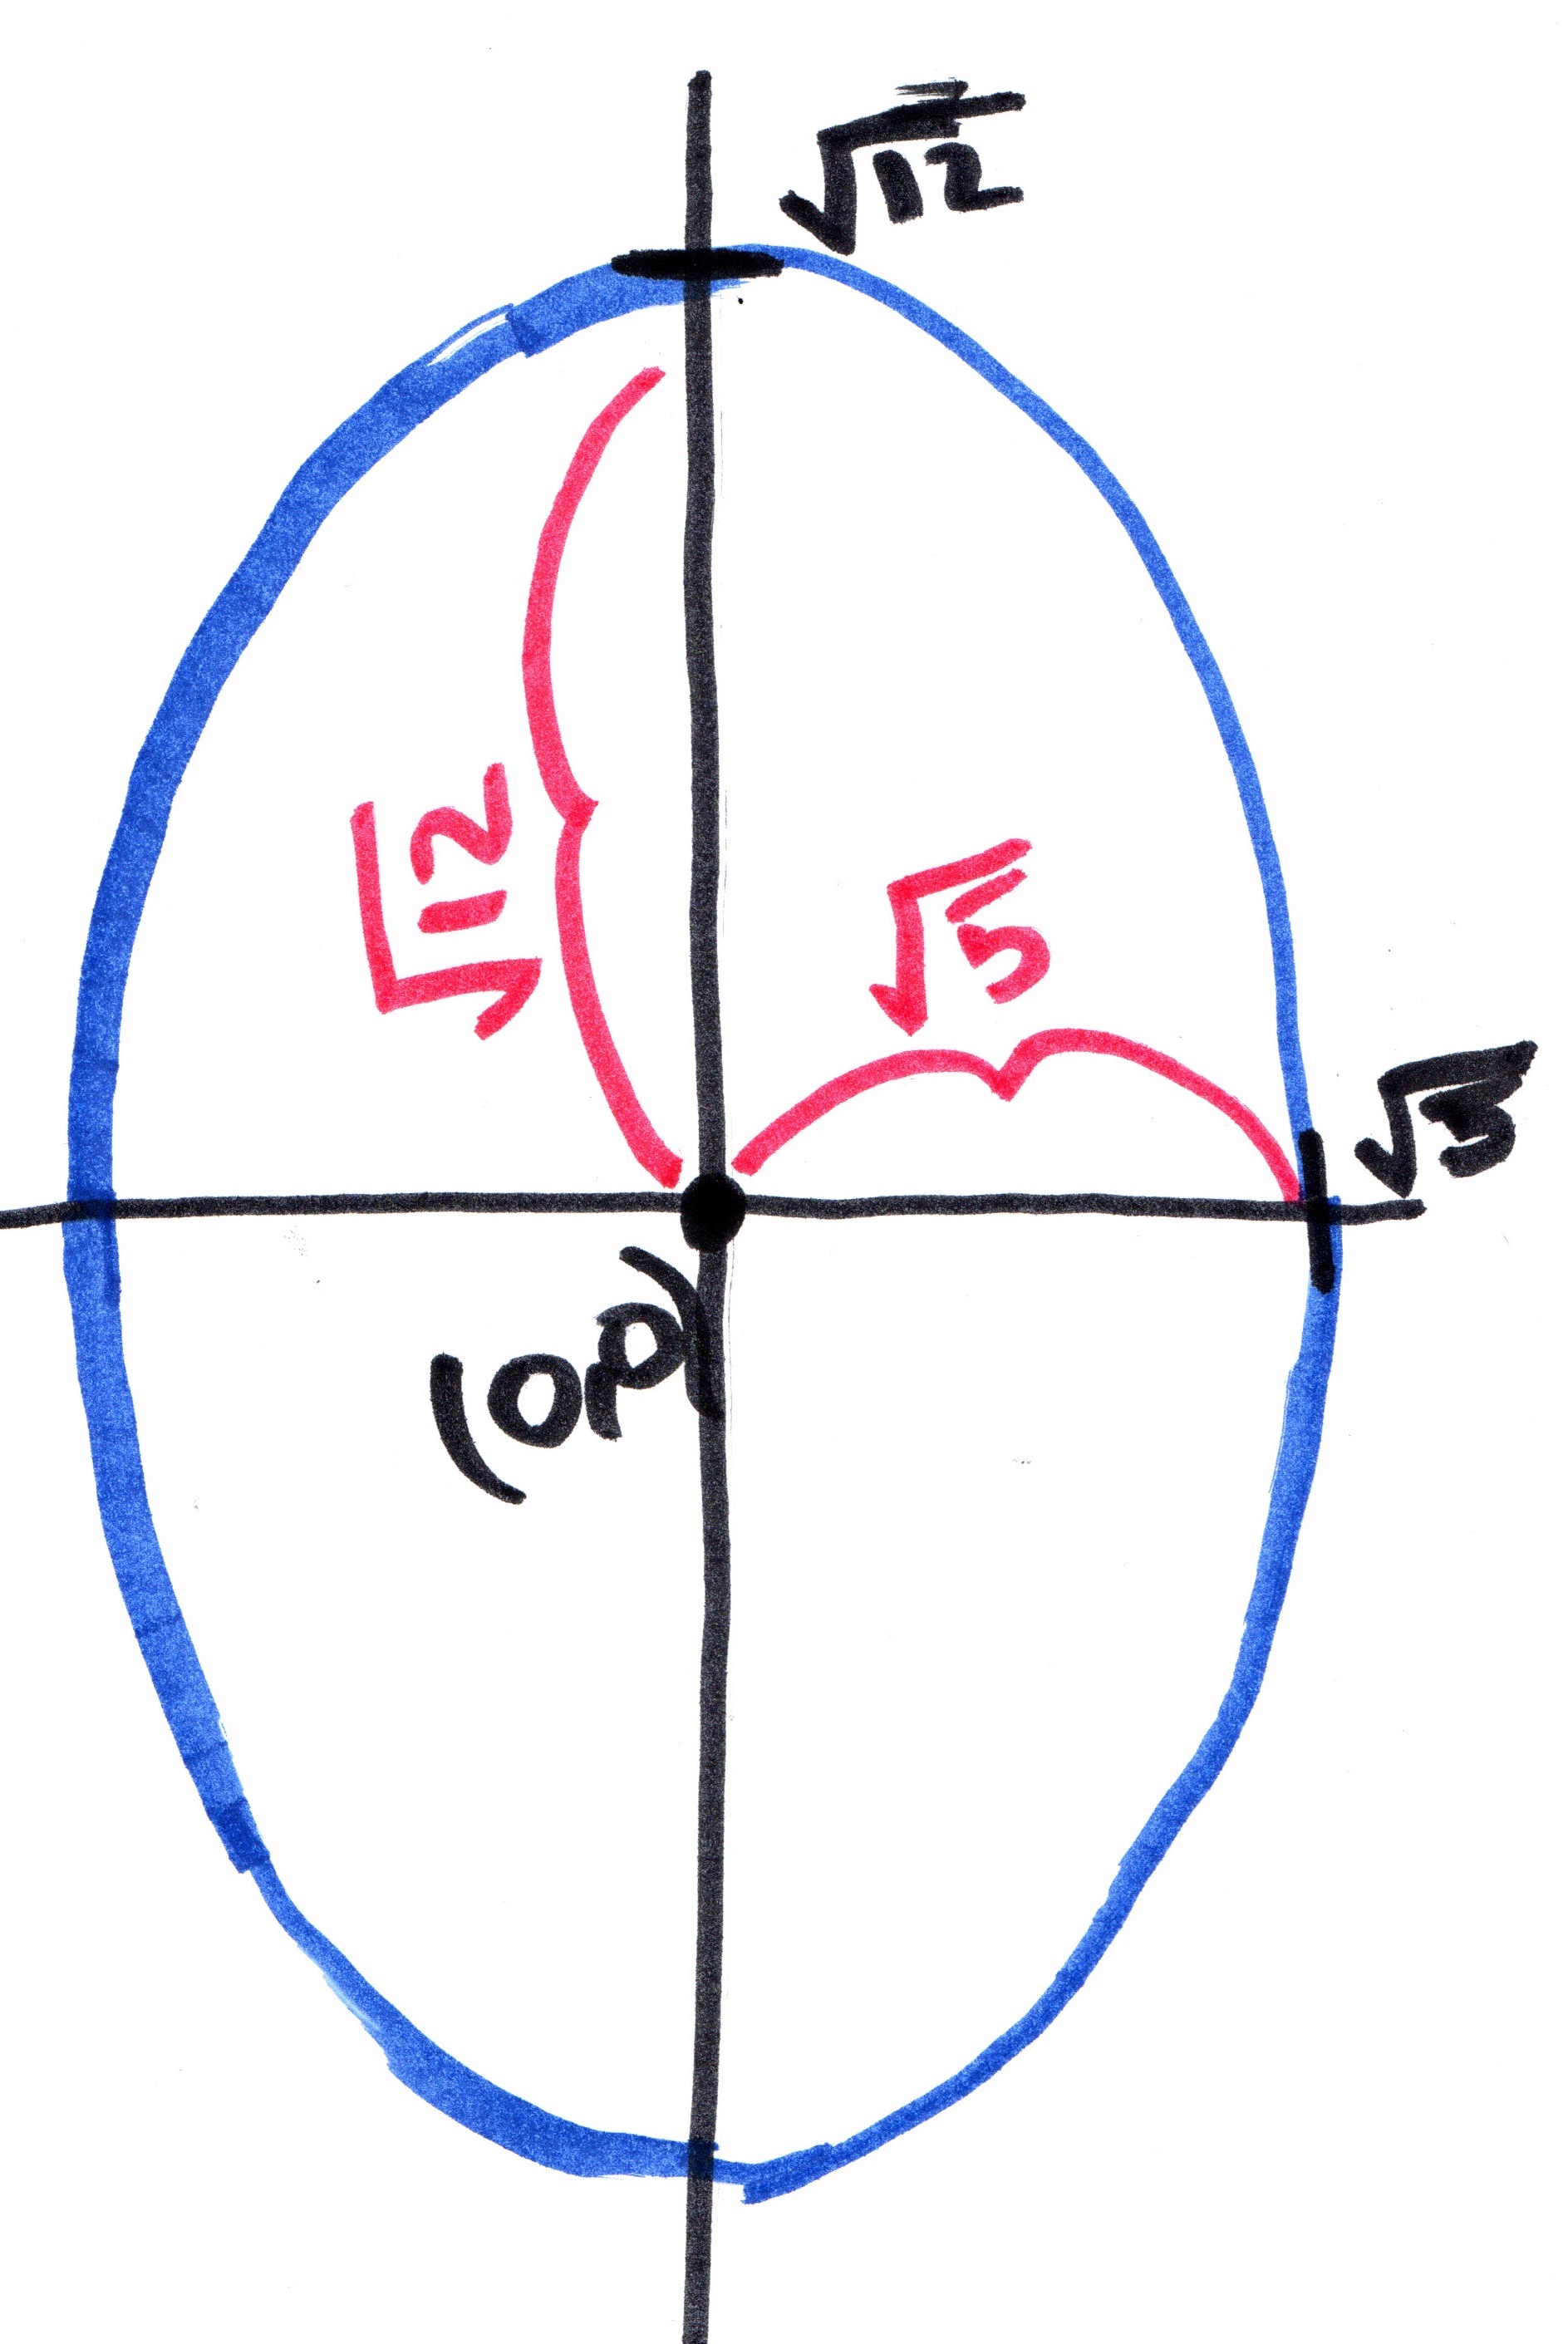 √12
√12
√5
(0,0)